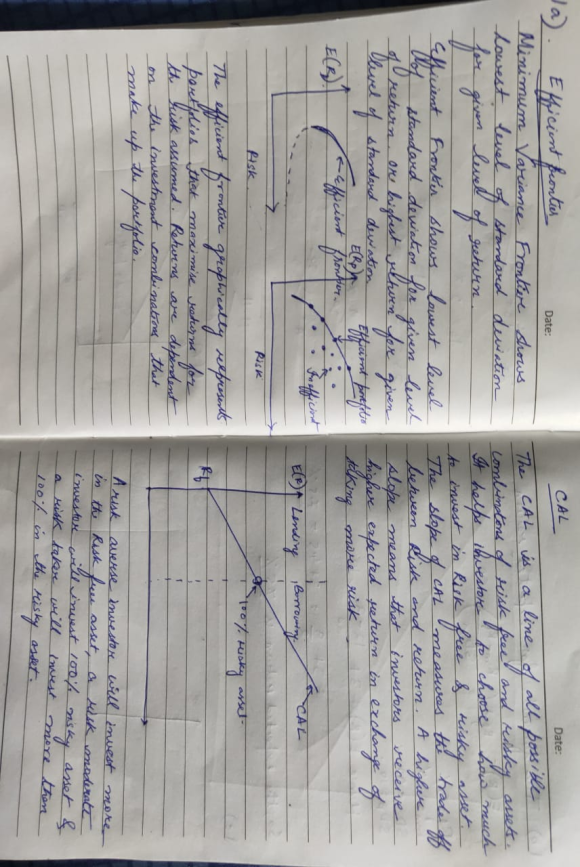 1a).
Efficient frontier
Date:
Minimum Variance Frontier shows
lowest level of standard deviation
for given level of return.
Efficient Frontier shows lowest level
of standard deviation for given level
of return or highest return for given
level of standard deviation
E(Rp)
Efficient
frontier
Risk
E(Rp)
Efficient portfolio
Inefficient
Risk
The efficient frontier graphically represents
portfolios that maximise returns for
the risk assumed. Returns are dependent
on the investment combinations that
make up the portfolio.
Date:
CAL
The CAL is a line of all possible
combinations of risk free and risky assets.
It helps investor to choose how much
to invest in Risk free & risky asset
The slope of CAL measures the trade off
between Risk and return. A higher
slope means that investors receive
higher expected return in exchange of
taking more risk
E(R)
Lending
Borrowing
CAL
100% risky asset
Rf
A risk averse investor will invest more
in the Risk free asset, a risk moderate
investor will invest 100% risky asset &
a risk taker will invest more than
100% in the risky asset.